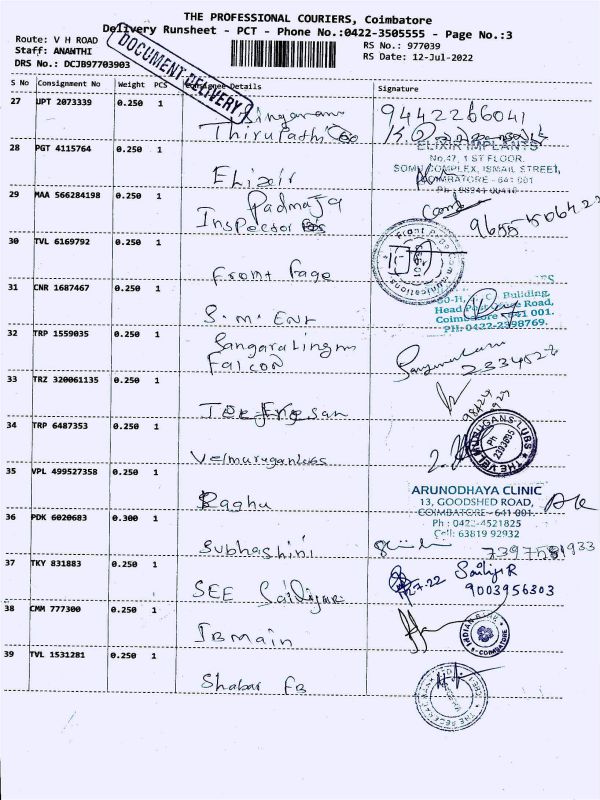 THE PROFESSIONAL COURIERS, Coimbatore
Delivery Runsheet - PCT - Phone No.:0422-3505555 - Page No.:3
Route: V H ROAD
Staff: ANANTHI
DRS No.: DCJB97703903
RS No.: 977039
RS Date: 12-Jul-2022
DOCUMENT DELIVERY
S No Consignment No Weight PCS Consignee Details Signature
27 UPT 2073339 0.250 1
Singaram
Thirupathi
9442266041
28 PGT 4115764 0.250 1
Elixir
ELIXIR IMPLANTS
No.47, 1 ST FLOOR,
SOMU COMPLEX, ISMAIL STREET,
COIMBATORE - 641 001
29 MAA 566284198 0.250 1
Padmaja
Inspector
30 TVL 6169792 0.250 1
Front Page
Front Page Communications
31 CNR 1687467 0.250 1
S.M. Ent
Building,
Head Post Office Road,
Coimbatore - 641 001.
PH: 0422-2398769.
32 TRP 1559035 0.250 1
Sangaralingam
Falcon
2334528
33 TRZ 320061135 0.250 1
34 TRP 6487353 0.250 1
Velmuruganlubs
THE VELMURUGANS LUBS
35 VPL 499527358 0.250 1
Raghu
ARUNODHAYA CLINIC
13, GOODSHED ROAD,
COIMBATORE - 641 001.
Ph : 0422-4521825
Cell: 63819 92932
36 PDK 6020683 0.300 1
Subhashini
37 TKY 831883 0.250 1
SEE
Sailija R
9003956303
38 CMM 777300 0.250 1
IB Main
INDIAN BANK
COIMBATORE
39 TVL 1531281 0.250 1